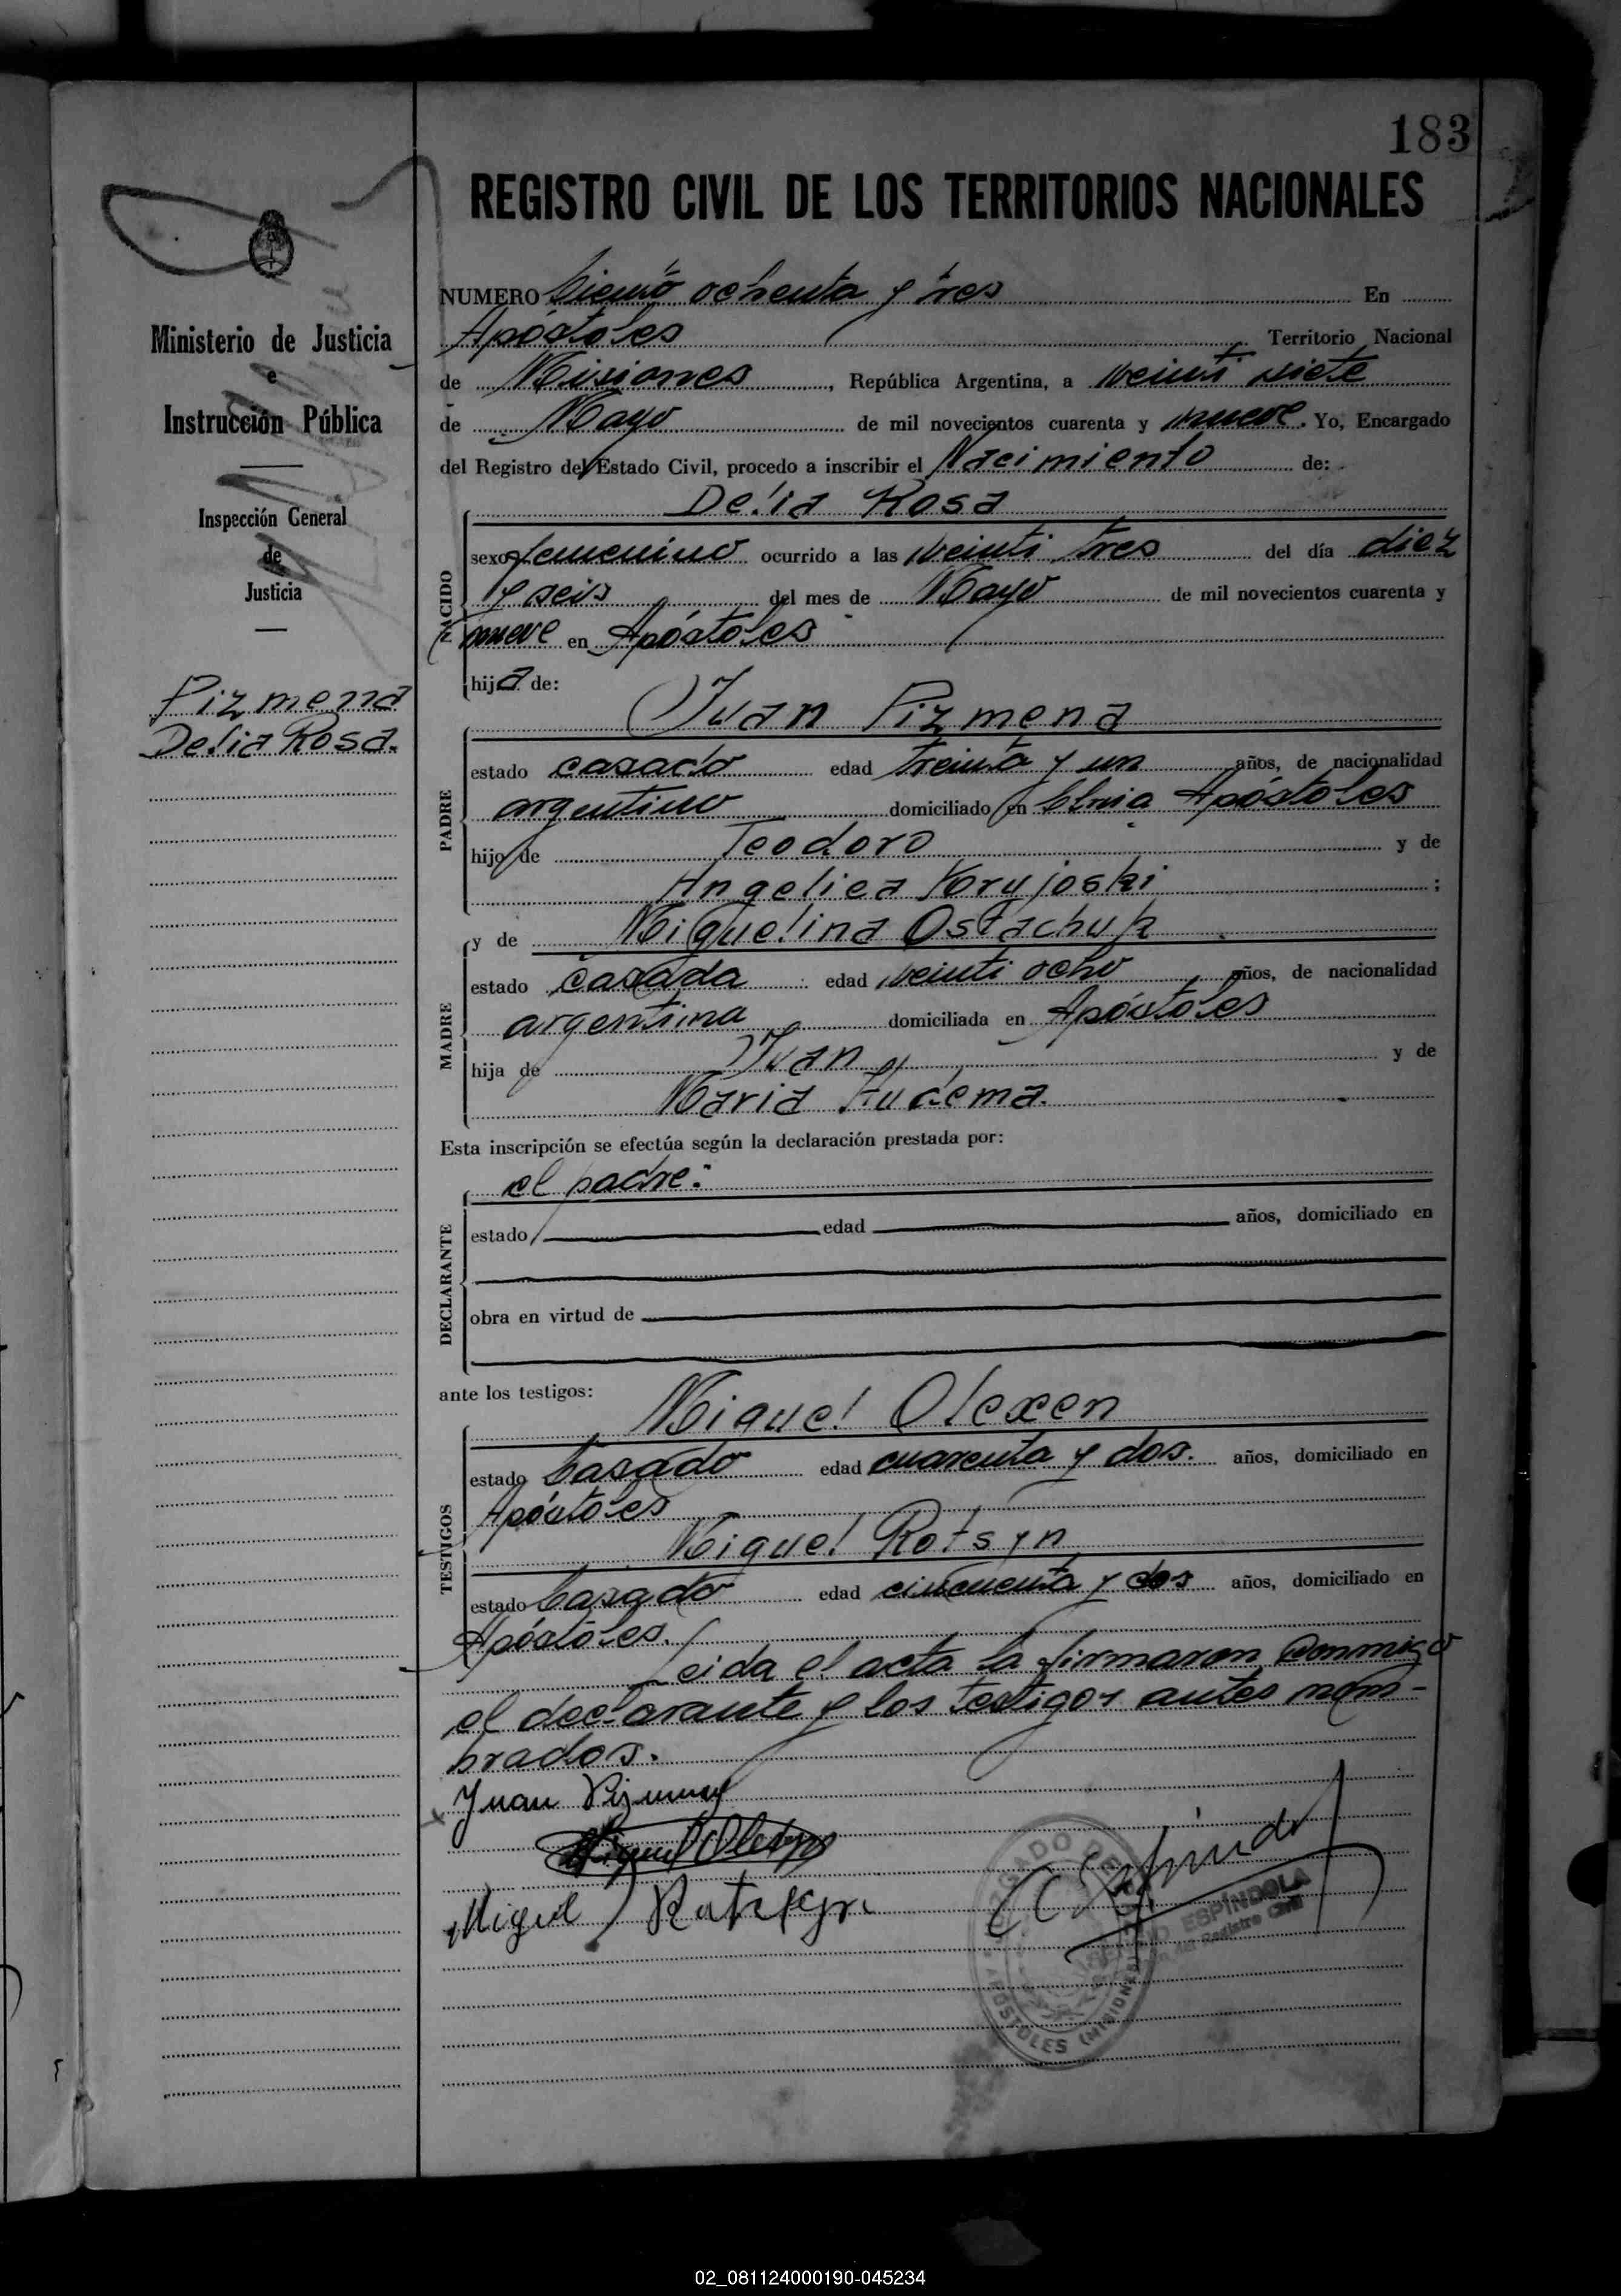 183
REGISTRO CIVIL DE LOS TERRITORIOS NACIONALES
Ministerio de Justicia
e
Instrucción Pública
Inspección General
de
Justicia
Pizmena
Delia Rosa.
NUMERO Ciento ochenta y tres En
Apóstoles Territorio Nacional
de Misiones, República Argentina, a veinti siete
de Mayo de mil novecientos cuarenta y nueve. Yo, Encargado
del Registro del Estado Civil, procedo a inscribir el Nacimiento de:
Delia Rosa
NACIDO
sexo femenino ocurrido a las veinti tres del día diez
y seis del mes de Mayo de mil novecientos cuarenta y
nueve en Apóstoles
hija de:
Juan Pizmena
PADRE
estado casado edad treinta y un años, de nacionalidad
argentino domiciliado en Clnia Apóstoles
hijo de Teodoro y de
Angelica Koryjoski ;
y de Miguelina Ostachuk
MADRE
estado casada edad veinti ocho años, de nacionalidad
argentina domiciliada en Apóstoles
hija de Juan y de
Maria Hudema.
Esta inscripción se efectúa según la declaración prestada por:
el padre:
DECLARANTE
estado edad años, domiciliado en
obra en virtud de
ante los testigos:
Miguel Olexen
TESTIGOS
estado Casado edad cuarenta y dos. años, domiciliado en
Apóstoles
Miguel Rotsyn
estado Casado edad cincuenta y dos años, domiciliado en
Apóstoles.
Leida el acta la firmaron conmigo
el declarante y los testigos antes nom-
brados.
Juan
Miguel
Miguel
ESPÍNDOLA
del Registro Civil
APOSTOLES (MISIONES)
02_081124000190-045234